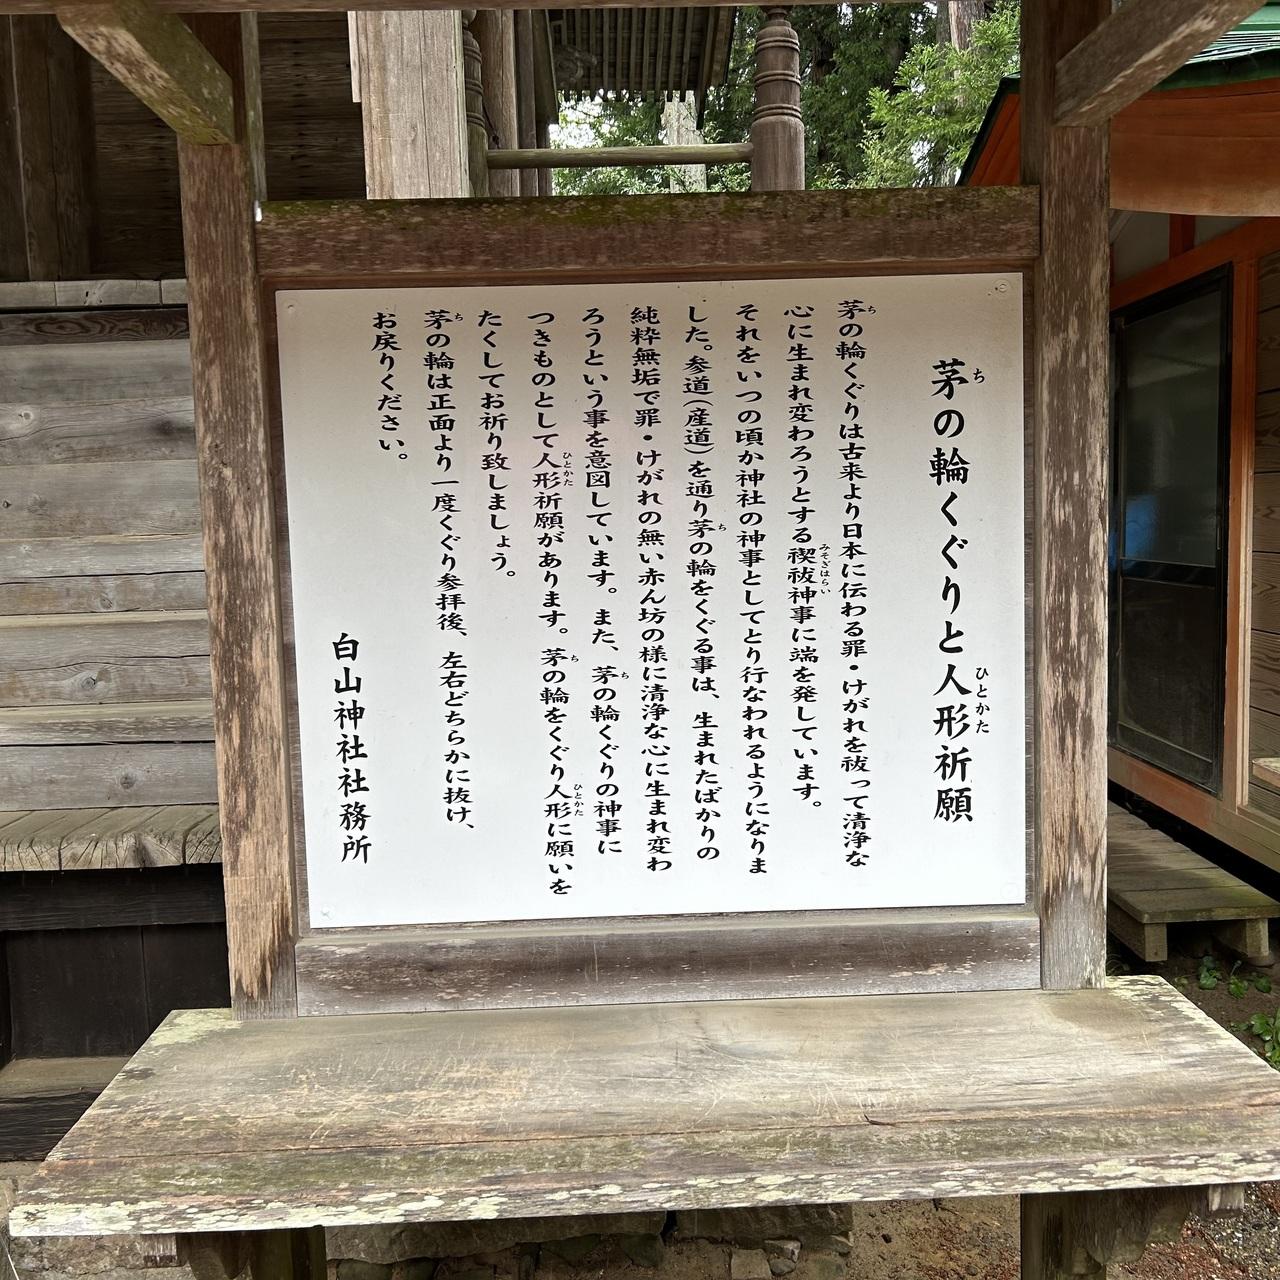 茅の輪くぐりと人形祈願
ち
ひとかた
茅の輪くぐりは古来より日本に伝わる罪・けがれを祓って清浄な
ち
心に生まれ変わろうとする禊祓神事に端を発しています。
みそぎはらい
それをいつの頃か神社の神事としてとり行なわれるようになりま
した。参道(産道)を通り茅の輪をくぐる事は、生まれたばかりの
ち
純粋無垢で罪・けがれの無い赤ん坊の様に清浄な心に生まれ変わ
ろうという事を意図しています。また、茅の輪くぐりの神事に
ち
つきものとして人形祈願があります。茅の輪をくぐり人形に願いを
ひとかた
ち
ひとかた
たくしてお祈り致しましょう。
茅の輪は正面より一度くぐり参拝後、左右どちらかに抜け、
ち
お戻りください。
白山神社社務所